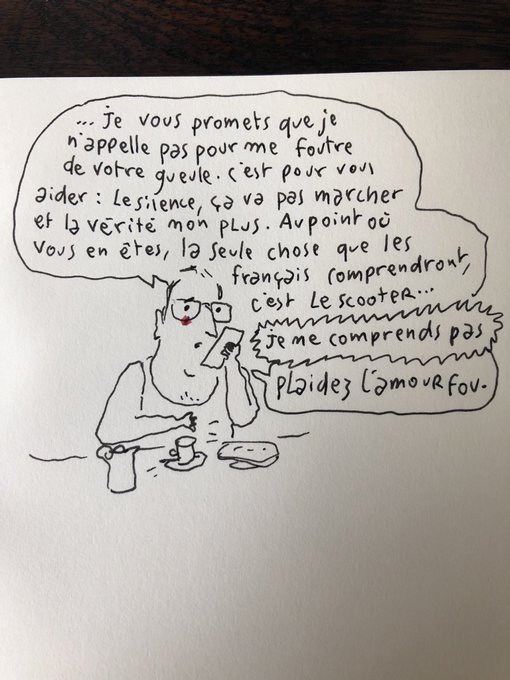 ... je vous promets que je
n'appelle pas pour me foutre
de votre gueule. c'est pour vous
aider : Le silence, ça va pas marcher
et la vérité mon plus. Au point où
vous en êtes, la seule chose que les
français comprendront,
c'est Le scooter...
je me comprends pas
Plaidez l'amour fou.